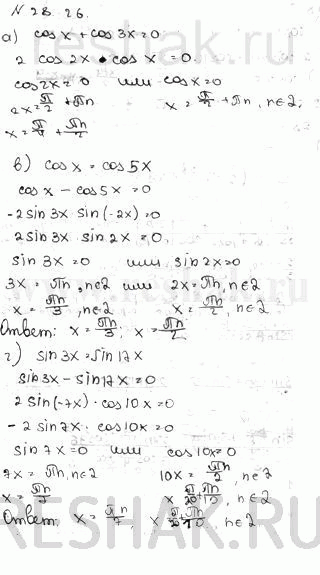 N 28. 26.
а) cos x + cos 3x = 0
2 cos 2x • cos x = 0.
cos 2x = 0 или cos x = 0
2x = π/2 + πn x = π/2 + πn, n∈Z;
x = π/4 + πn/2
в) cos x = cos 5x
cos x - cos 5x = 0
-2 sin 3x sin(-2x) = 0
2 sin 3x sin 2x = 0.
sin 3x = 0 или sin 2x = 0
3x = πn, n∈Z или 2x = πn, n∈Z
x = πn/3, n∈Z x = πn/2, n∈Z
Ответ: x = πn/3; x = πn/2
г) sin 3x = sin 17x
sin 3x - sin 17x = 0
2 sin(-7x) · cos 10x = 0
-2 sin 7x · cos 10x = 0
sin 7x = 0 или cos 10x = 0
7x = πn, n∈Z 10x = πn/2, n∈Z
x = πn/7 x = π/20 + πn/10, n∈Z
Ответ: x = πn/7, x = π/20 + πn/10, n∈Z
RESHAK.RU